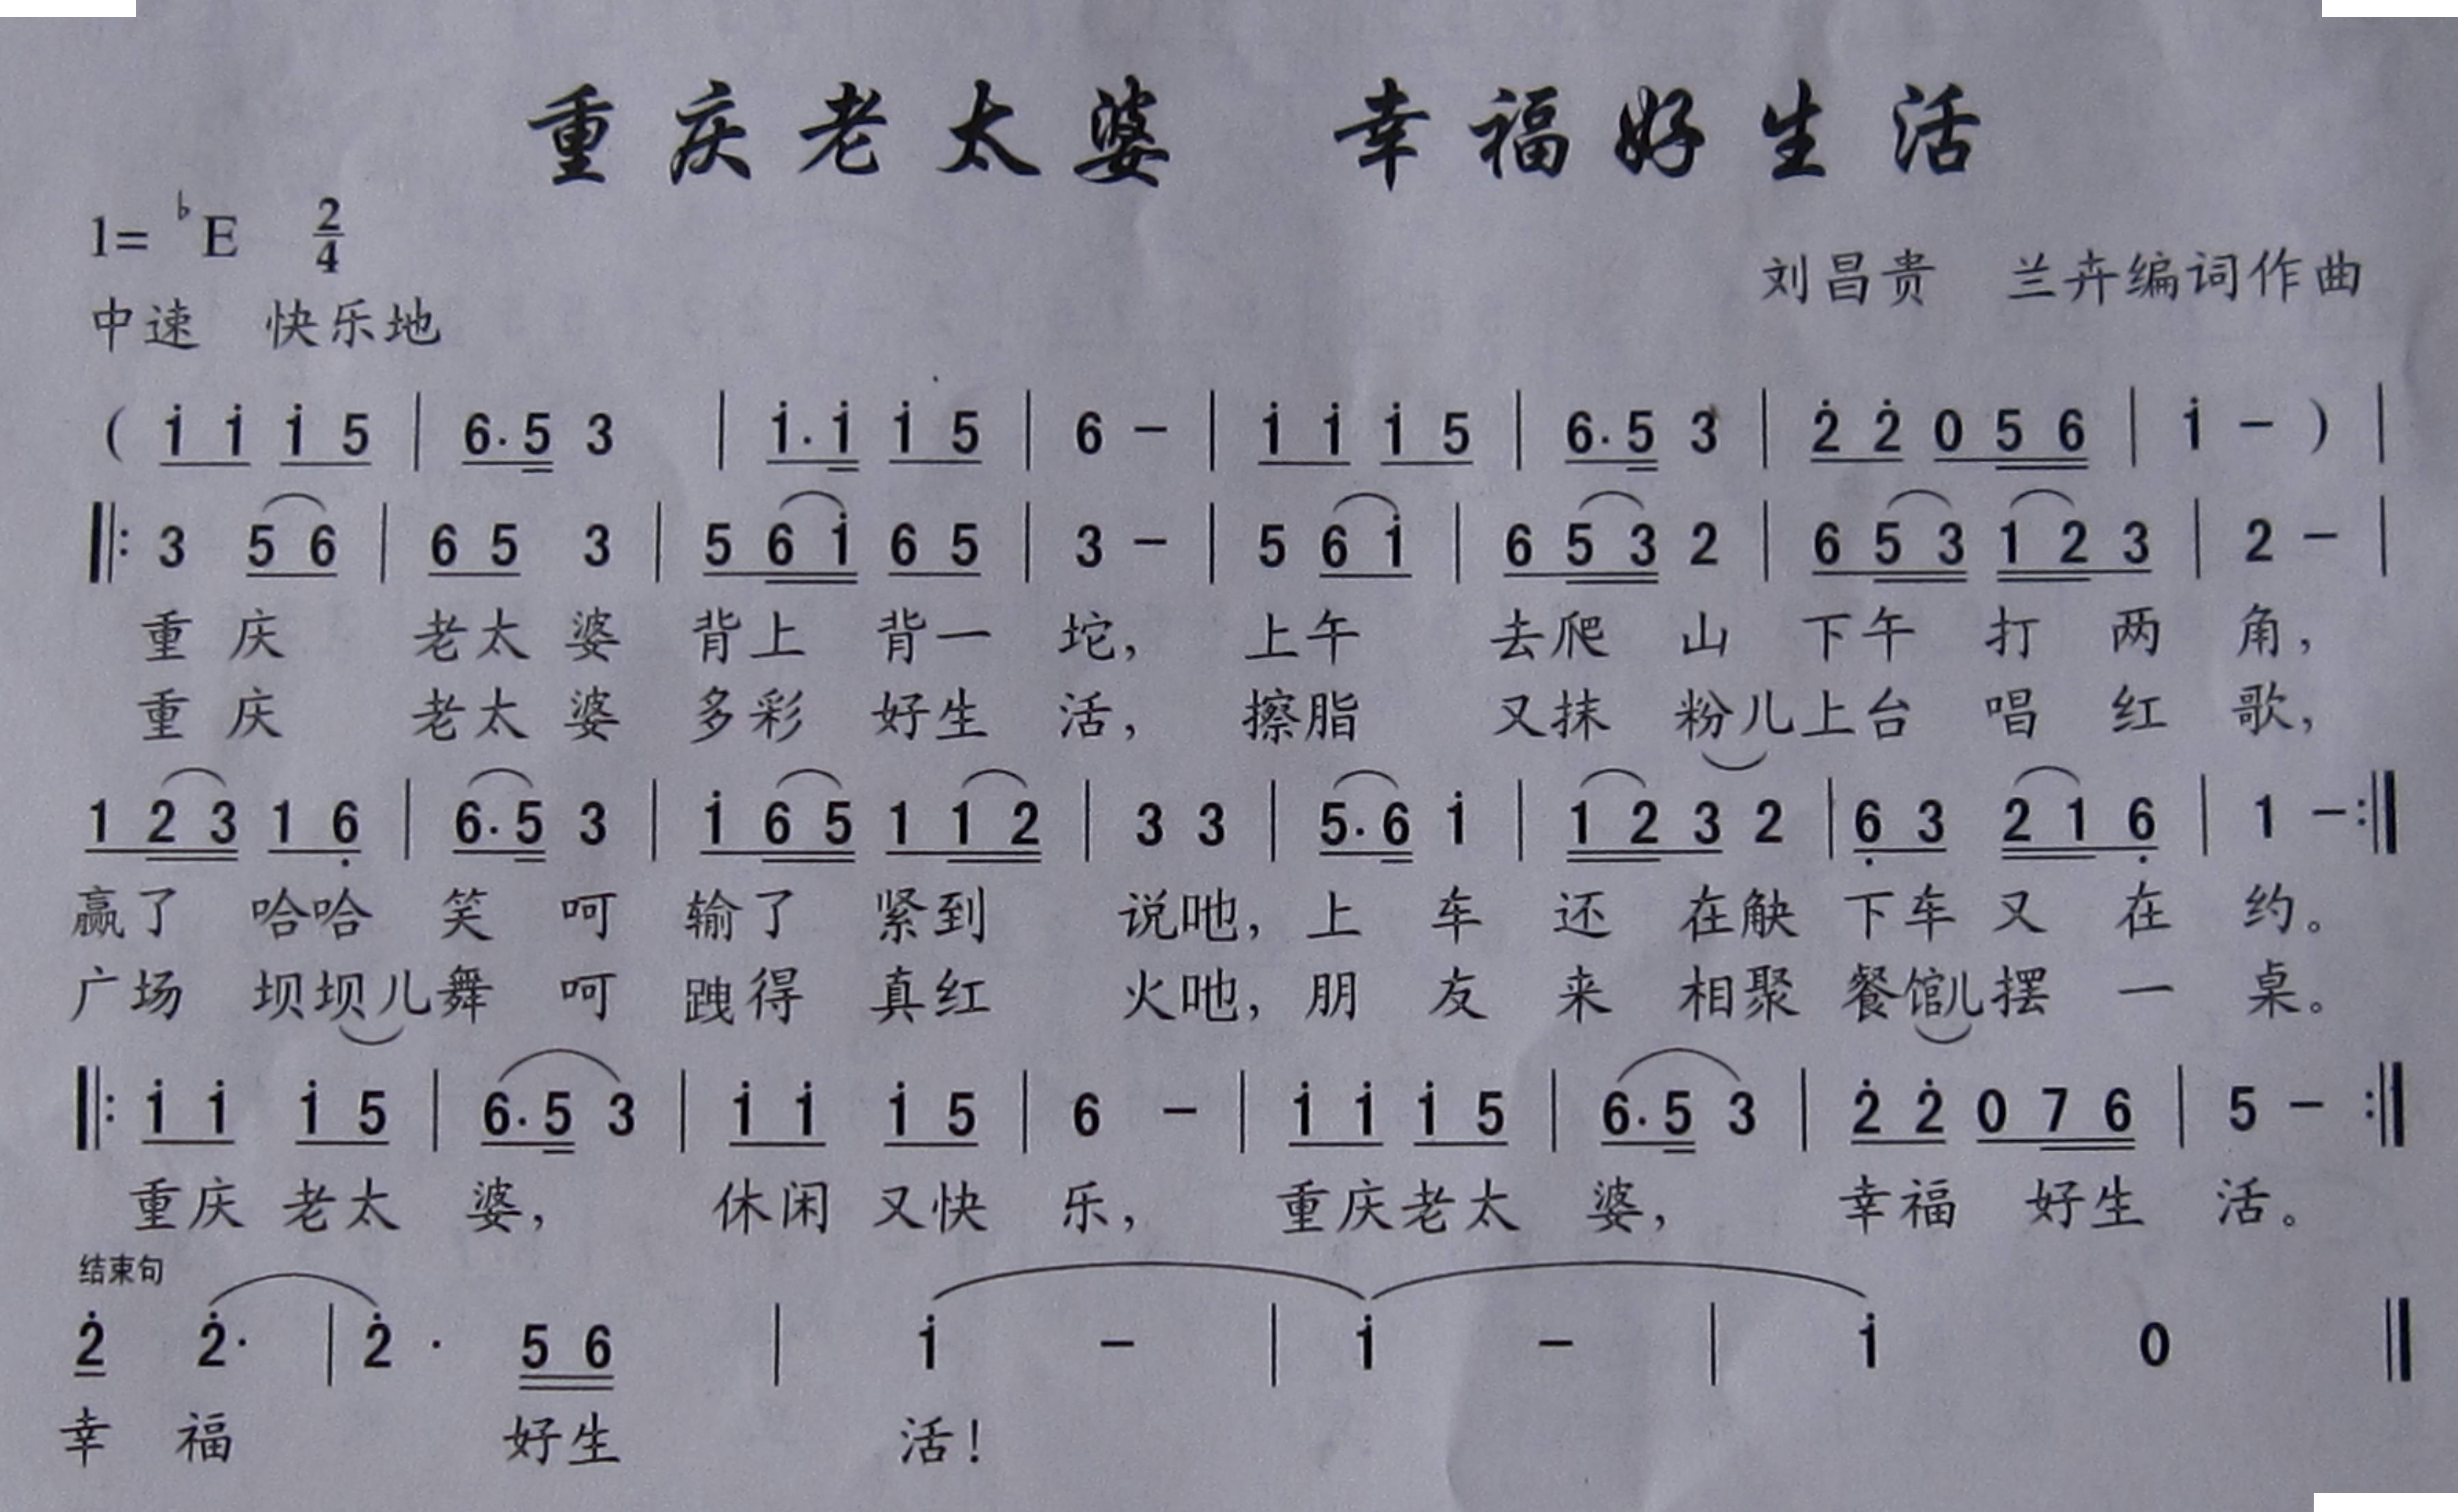 重庆老太婆 幸福好生活
1=♭E 2/4
刘昌贵 兰卉编词作曲
中速 快乐地
( i i i 5 | 6·5 3 | i·i i 5 | 6 - | i i i 5 | 6·5 3 | 2̇ 2̇ 0 5 6 | i - ) |
‖: 3 5 6 | 6 5 3 | 5 6 i 6 5 | 3 - | 5 6 i | 6 5 3 2 | 6 5 3 1 2 3 | 2 - |
重庆 老太婆 背上 背一 坨， 上午 去爬 山 下午 打 两 角，
重庆 老太婆 多彩 好生 活， 擦脂 又抹 粉儿上台 唱 红 歌，
1 2 3 1 6̣ | 6·5 3 | i 6 5 1 1 2 | 3 3 | 5·6 i | 1 2 3 2 | 6̣ 3 2 1 6̣ | 1 - :‖
赢了 哈哈 笑 呵 输了 紧到 说吔， 上 车 还 在 下车 又 在 约。
广场 坝坝儿舞 呵 跩得 真红 火吔， 朋 友 来 相聚 餐馆儿摆 一 桌。
‖: i i i 5 | 6·5 3 | i i i 5 | 6 - | i i i 5 | 6·5 3 | 2̇ 2̇ 0 7 6 | 5 - :‖
重庆 老太 婆， 休闲 又快 乐， 重庆老太 婆， 幸福 好生 活。
结束句
2̇ 2̇· | 2̇ · 5 6 | i - | i - | i 0 ‖
幸 福 好生 活！